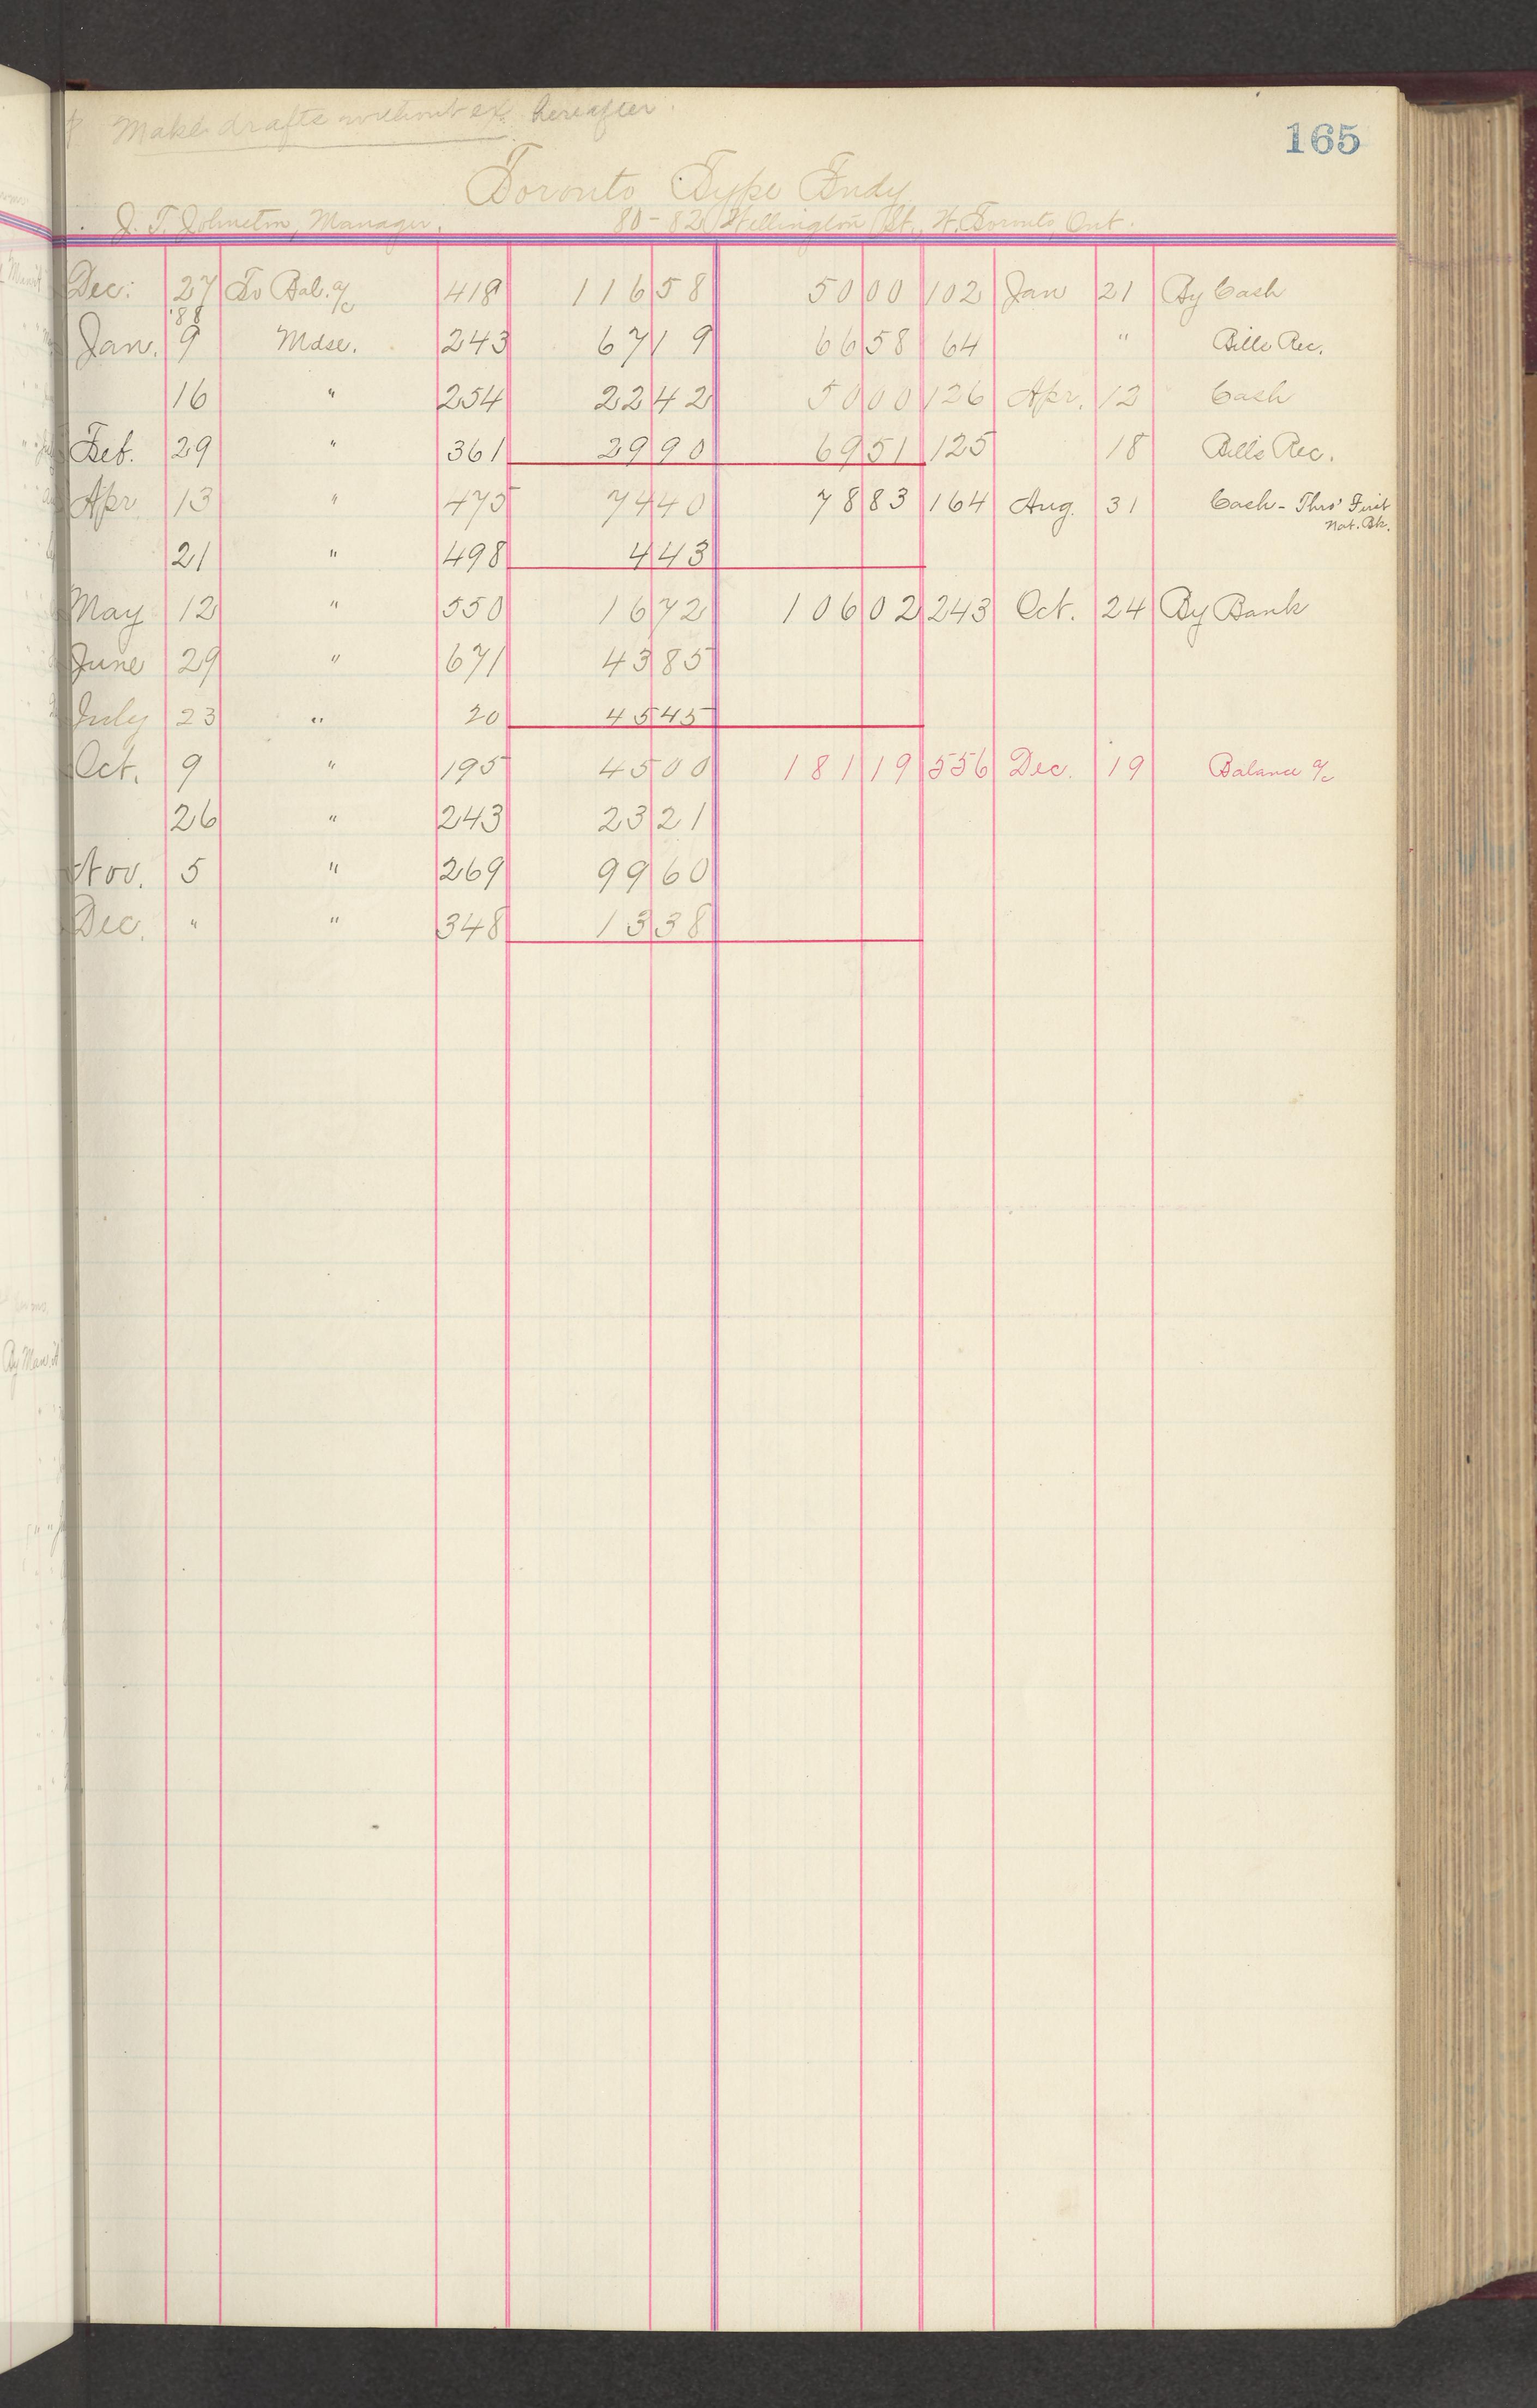 Make drafts without ex. hereafter.
165
Toronto Type Fndy
J. T. Johnston, Manager. 80-82 Wellington St. W. Toronto, Ont.
Dec. 27 To Bal. a/c 418 116 58 50 00 102 Jan 21 By Cash
'88
Jan. 9 Mdse. 243 67 19 66 58 64 " Bills Rec.
16 " 254 22 42 50 00 126 Apr. 12 Cash
Feb. 29 " 361 29 90 69 51 125 18 Bills Rec.
Apr 13 " 475 74 40 78 83 164 Aug. 31 Cash - Thro' First
Nat. Bk.
21 " 498 4 43
May 12 " 550 16 72 106 02 243 Oct. 24 By Bank
June 29 " 671 43 85
July 23 " 20 45 45
Oct. 9 " 195 45 00 181 19 556 Dec. 19 Balance a/c
26 " 243 23 21
Nov. 5 " 269 99 60
Dec. " " 348 13 38
By Man.